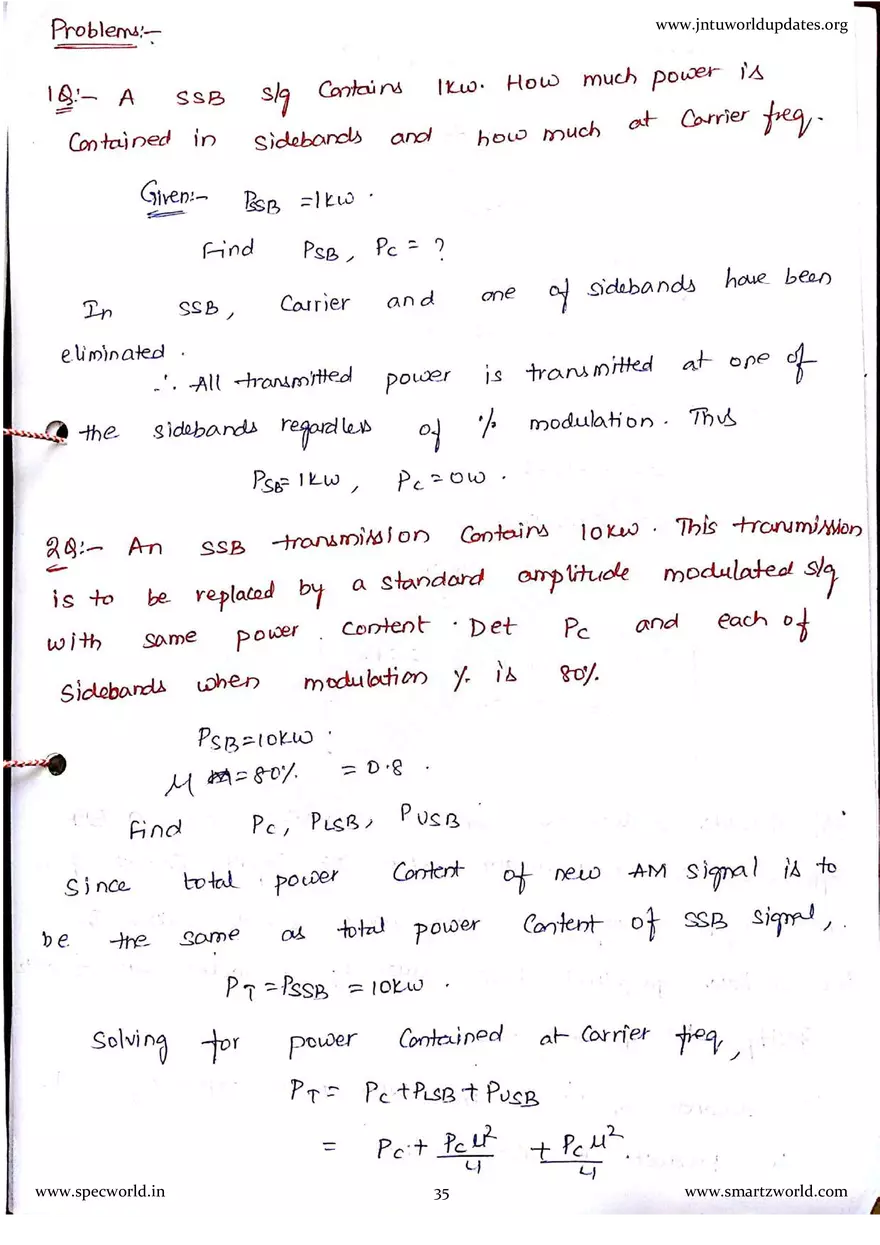 www.jntuworldupdates.org
Problems:-
1Q:- A SSB s/g Contains 1kw. How much power is
Contained in sidebands and how much at Carrier freq.
Given:- PSSB = 1kw.
Find PSB, Pc = ?
In SSB, Carrier and one of sidebands have been
eliminated.
∴ All transmitted power is transmitted at one of
the sidebands regardless of % modulation. Thus
PSB= 1kw, Pc = 0w.
2Q:- An SSB transmission Contains 10kw. This transmission
is to be replaced by a standard amplitude modulated s/g
with same power content. Det Pc and each of
Sidebands when modulation % is 80%.
PSB=10kw.
μ = 80% = 0.8.
Find Pc, PLSB, PUSB
Since total power Content of new AM signal is to
be the same as total power Content of SSB signal,
PT = PSSB = 10kw.
Solving for power Contained at Carrier freq,
PT = Pc + PLSB + PUSB
= Pc + Pcμ²/4 + Pcμ²/4.
www.specworld.in 35 www.smartzworld.com